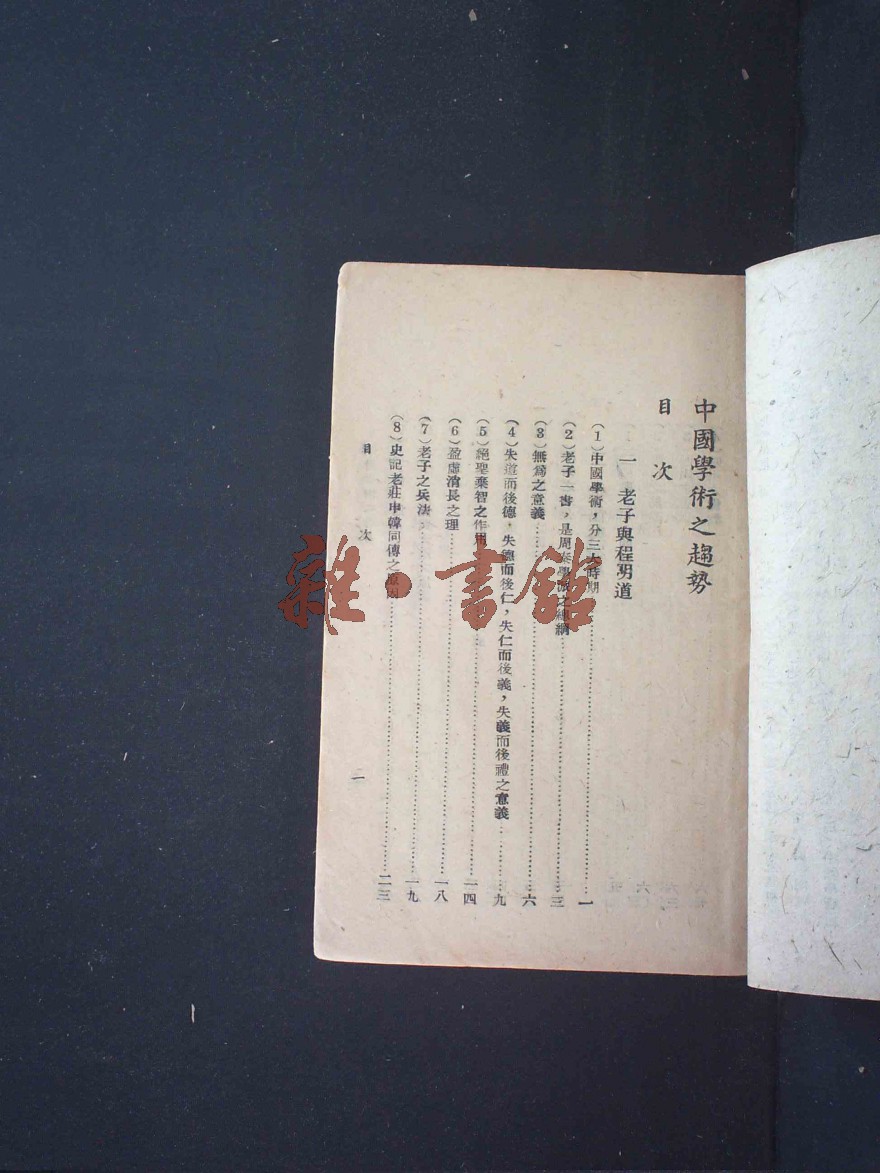 中國學術之趨勢
目 次
一 老子與程明道
(1)中國學術，分三大時期……一
(2)老子一書，是周秦學派之總綱……三
(3)無爲之意義……六
(4)失道而後德，失德而後仁，失仁而後義，失義而後禮之意義……九
(5)絕聖棄智之作用……一四
(6)盈虛消長之理……一八
(7)老子之兵法……一九
(8)史記老莊申韓同傳之原因……二三
目 次
一
雜·書館